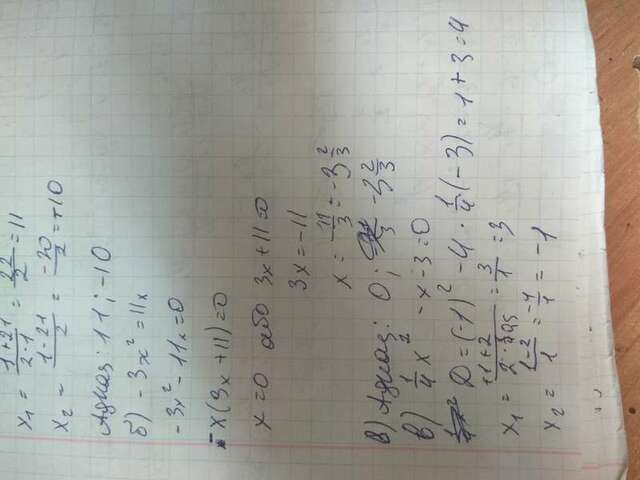 x₁ = (1+21)/(2·1) = 22/2 = 11
x₂ = (1-21)/2 = -20/2 = -10
Адказ: 11; -10
б) -3x² = 11x
-3x² - 11x = 0
-x(3x + 11) = 0
x = 0 або 3x + 11 = 0
3x = -11
x = -11/3 = -3 2/3
Адказ: 0; -3 2/3
в) 1/4 x² - x - 3 = 0
D = (-1)² - 4 · 1/4 (-3) = 1 + 3 = 4
x₁ = (1+2)/(2·0,25) = 3/1 = 3
x₂ = (1-2)/1 = -1/1 = -1